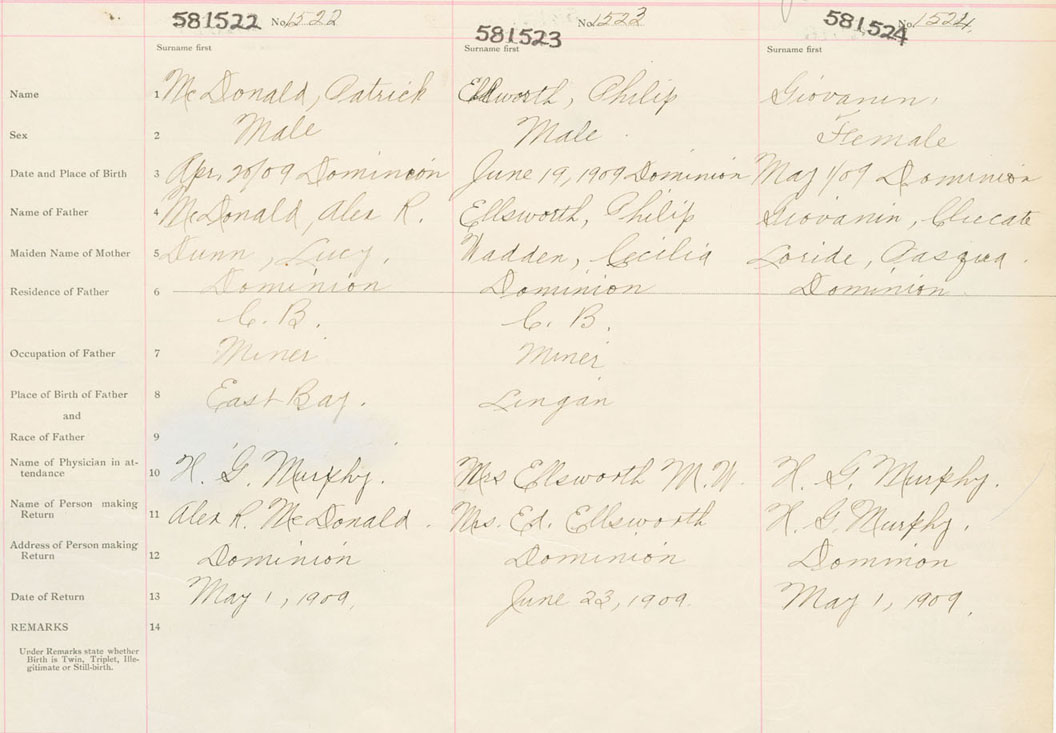 581522 No. 1522 581523 No. 1523 581524 No. 1524
Surname first Surname first Surname first
Name 1 McDonald, Patrick Ellsworth, Philip Giovanin,
Sex 2 Male Male Female
Date and Place of Birth 3 Apr. 20/09 Dominion June 19, 1909 Dominion May 1/09 Dominion
Name of Father 4 McDonald, Alex R. Ellsworth, Philip Giovanin,
Maiden Name of Mother 5 Dunn, Lucy. Wadden, Cecilia Loride, Pasqua.
Residence of Father 6 Dominion Dominion Dominion
C. B. C. B.
Occupation of Father 7 Miner Miner
Place of Birth of Father 8 East Bay. Lingan
and
Race of Father 9
Name of Physician in at-
tendance 10 H. G. Murphy. Mrs Ellsworth M.W. H. G. Murphy.
Name of Person making
Return 11 Alex R. McDonald. Mrs. Ed. Ellsworth H. G. Murphy.
Address of Person making
Return 12 Dominion Dominion Dominion
Date of Return 13 May 1, 1909. June 23, 1909. May 1, 1909.
REMARKS 14
Under Remarks state whether
Birth is Twin, Triplet, Ille-
gitimate or Still-birth.